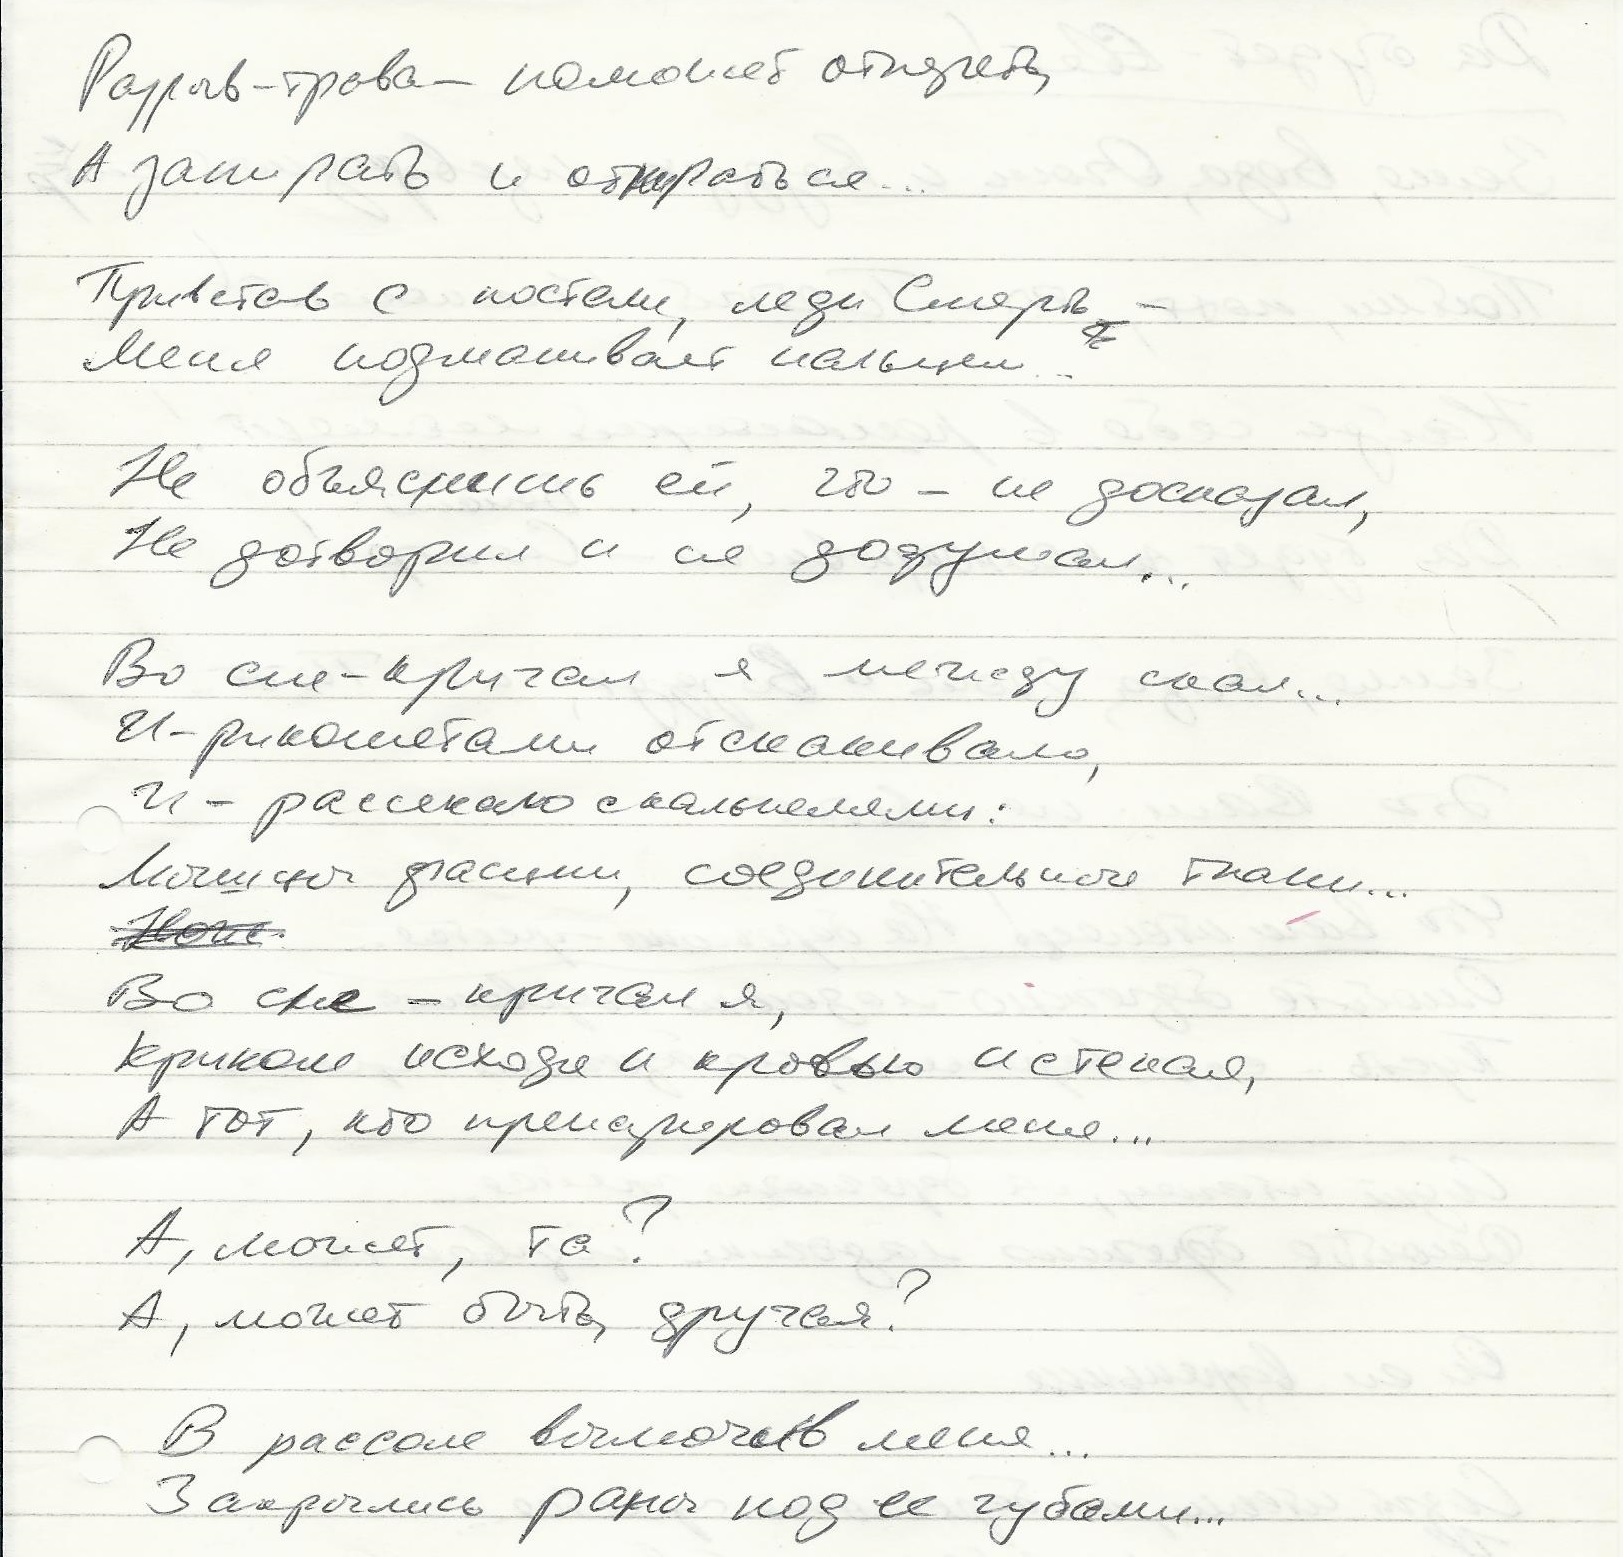 Разрыв-трава – поможет отпереть,
А запирать и отпираться...
Привстав с постели, леди Смерть –
Меня подманивает пальцем...
Не объяснишь ей, что – не досказал,
Не дотворил и не додумал...
Во сне-кричал я между скал...
И-рикошетами отскакивало,
И – рассекало скальпелями:
Мышцы фасции, соединительные ткани...
Во сне – кричал я,
Криком исходя и кровью истекая,
А тот, кто препарировал меня...
А, может, та?
А, может быть, другая?
В рассоле вымочив меня...
Закрылись раны под ее губами...